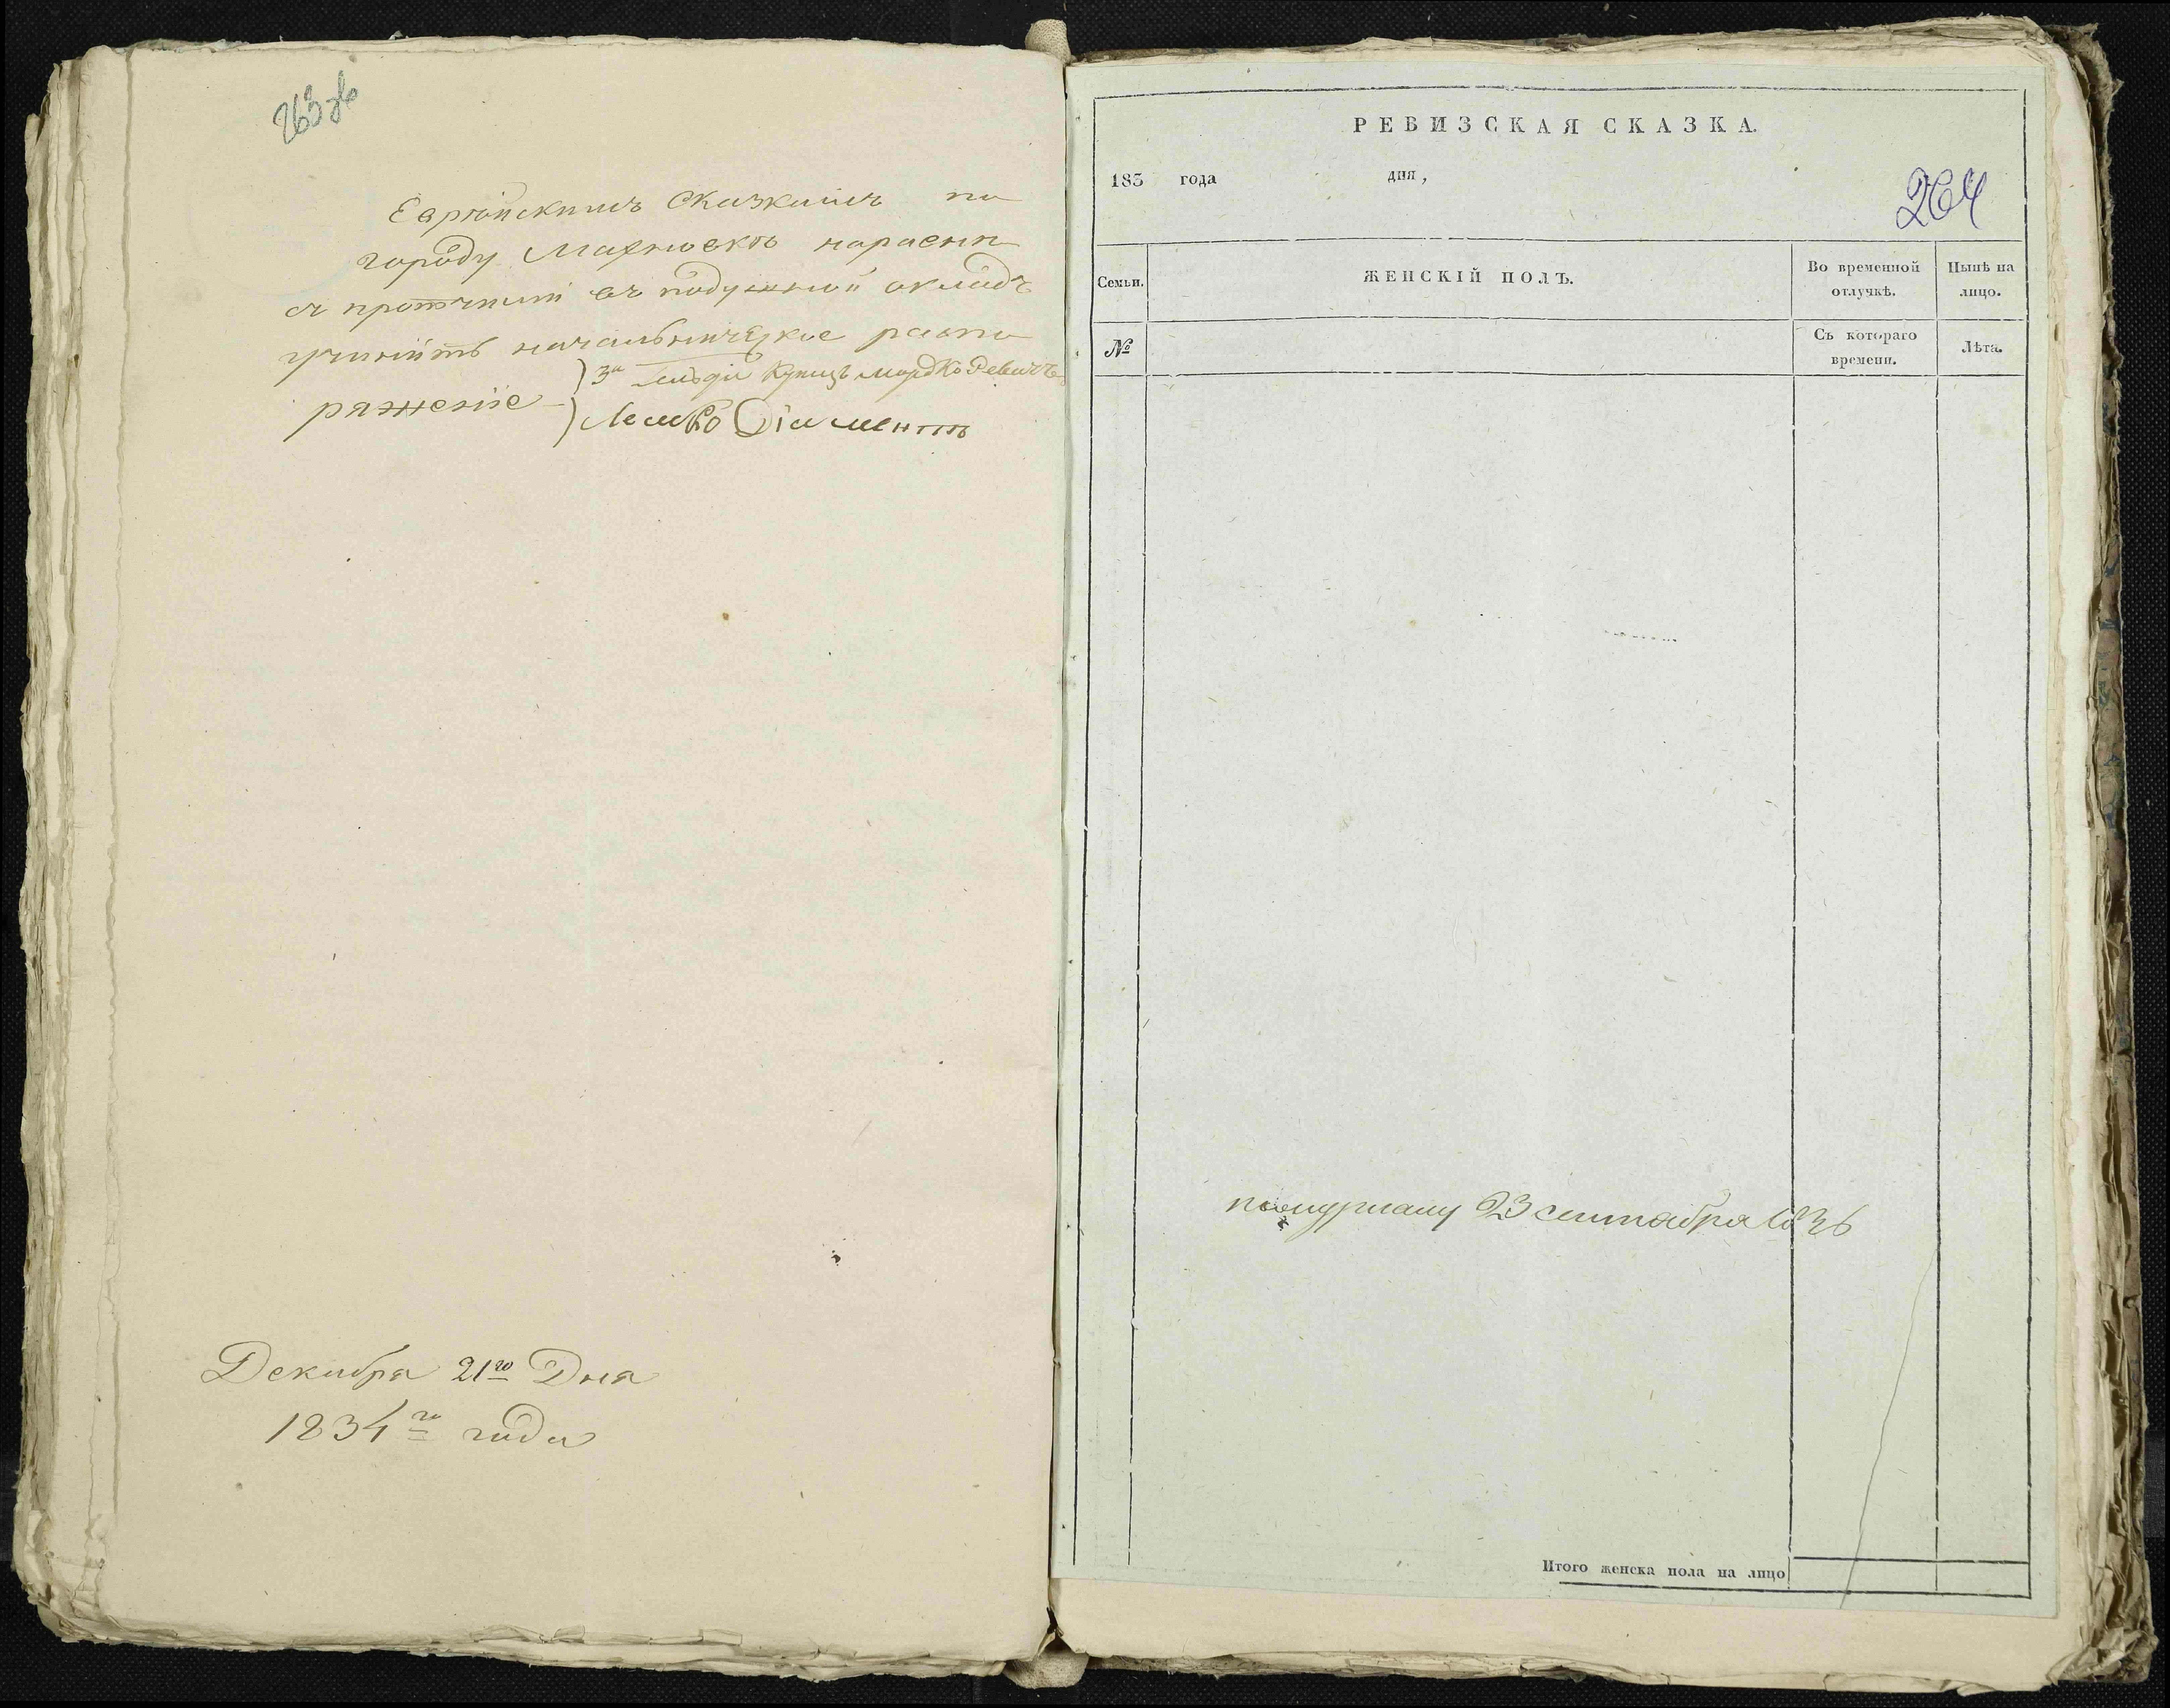 263 об
Еврейскимъ Сказкамъ по
городу Махновкѣ нарасни
съ протчими въ подушной окладъ
учинить начальническое распо
ряженіе
3й Гильдіи Купецъ Мордко Левичъ
Лемко Діаментъ
Декабра 21го Дня
1834го года
РЕВИЗСКАЯ СКАЗКА.
183 года дня,
264
Семьи. ЖЕНСКІЙ ПОЛЪ. Во временной отлучкѣ. Нынѣ на лицо.
№ Съ котораго времени. Лѣта.
23 сентабра 1836
Итого женска пола на лицо